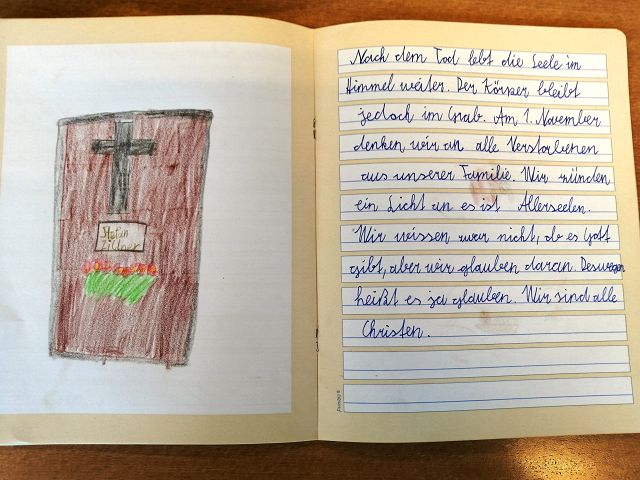 Stefan
Zillner
Nach dem Tod lebt die Seele im
Himmel weiter. Der Körper bleibt
jedoch im Grab. Am 1. November
denken wir an alle Verstorbenen
aus unserer Familie. Wir zünden
ein Licht an es ist Allerseelen.
Wir wissen zwar nicht, ob es Gott
gibt, aber wir glauben daran. Deswegen
heißt es ja glauben. Wir sind alle
Christen.